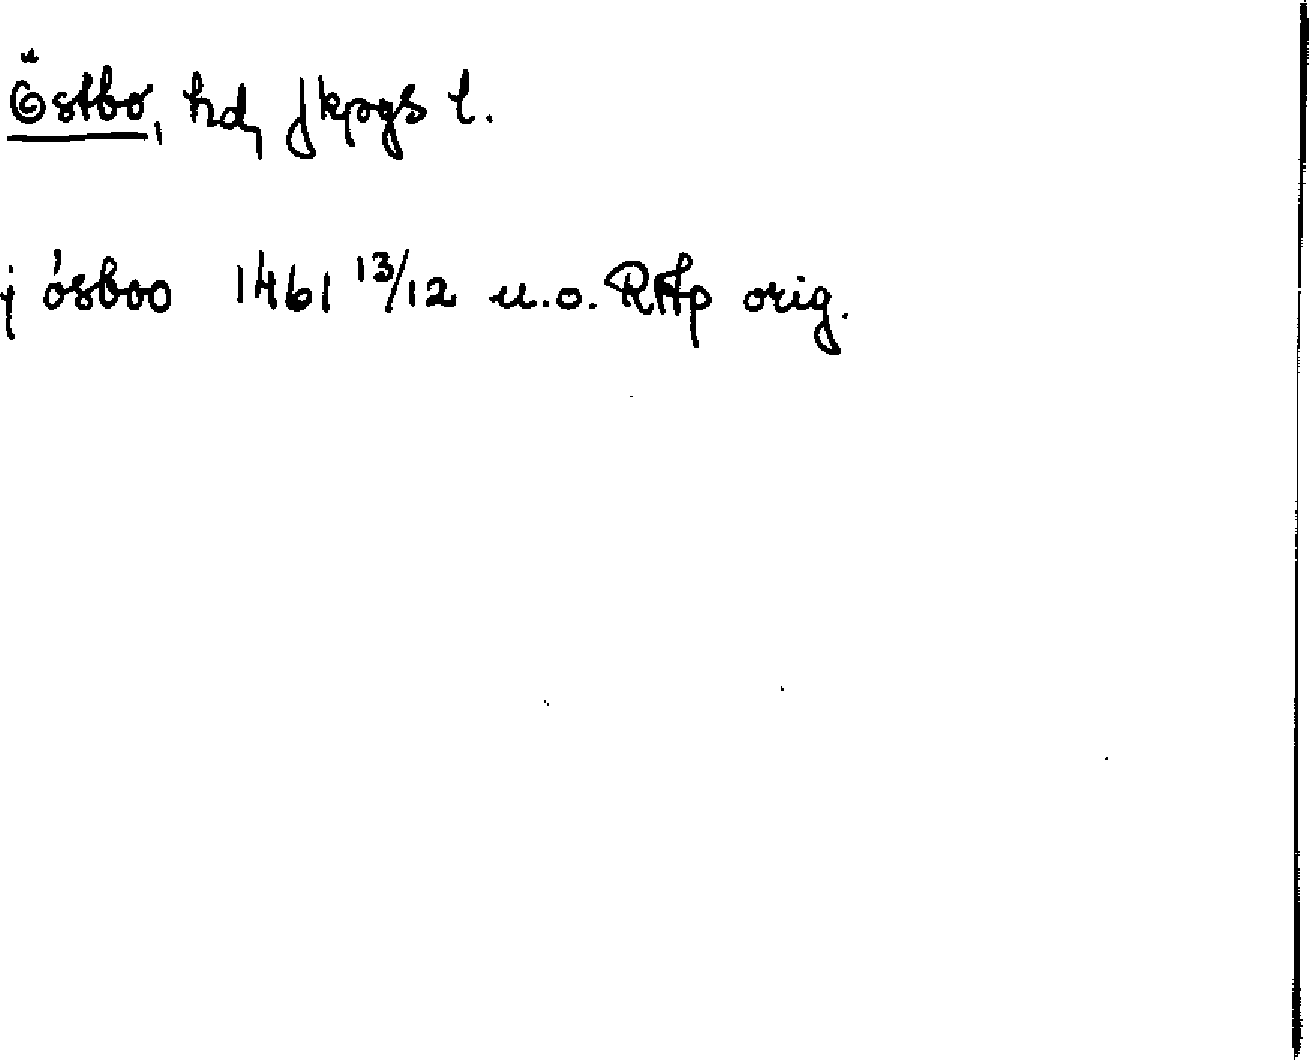 Östbo, hd, Jkpgs l.
j ósboo 1461 13/12 u.o. RAp orig.